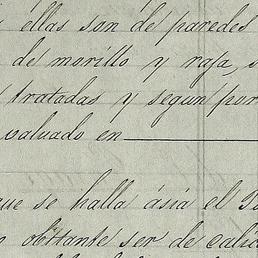 ellas son de paredes
de morillo y raja,
tratadas y segun por
valuado en
que se halla ásia el
obstante ser de calic